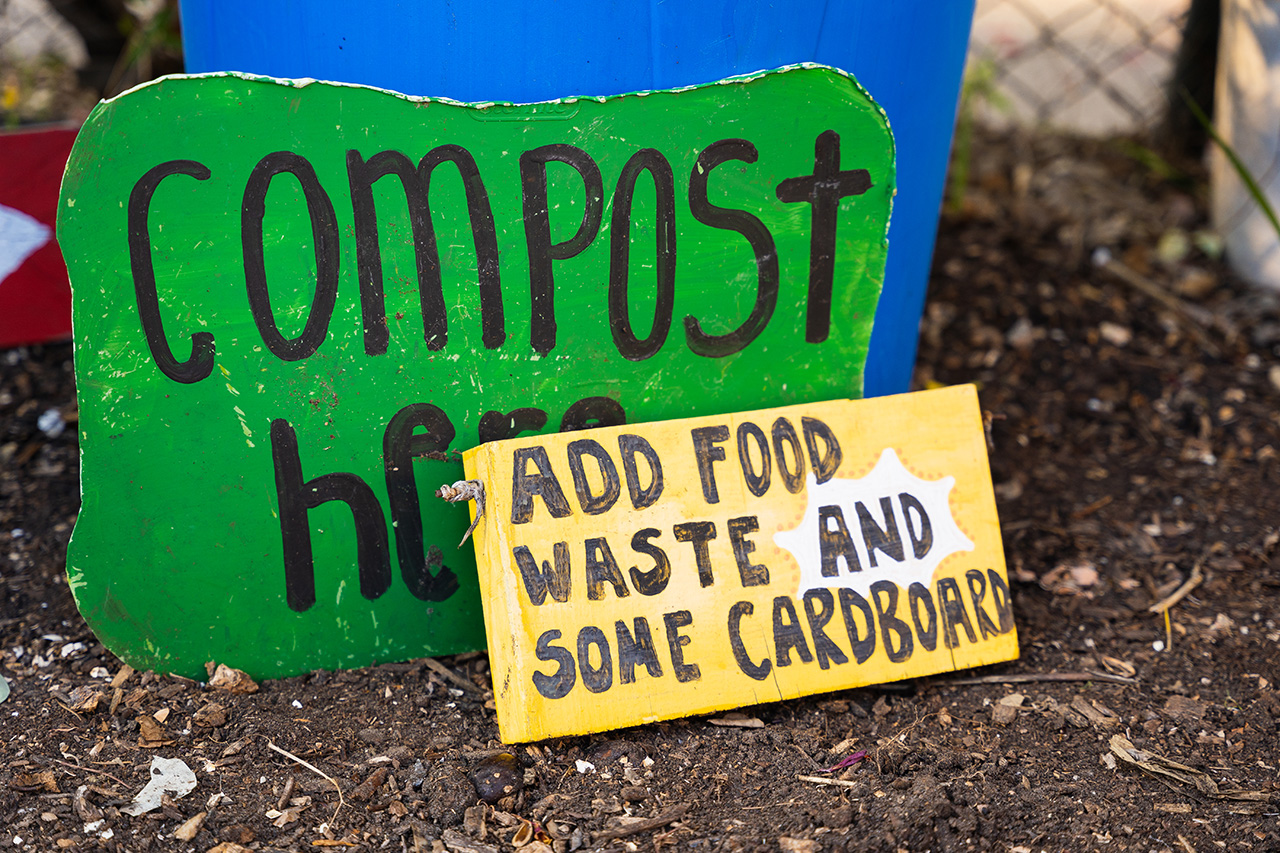 COMPOST
here
ADD FOOD
WASTE AND
SOME CARDBOARD